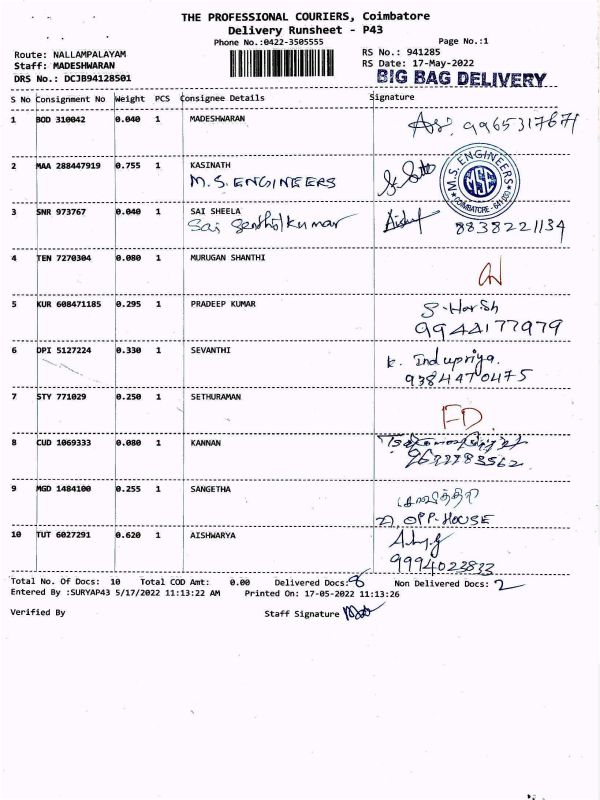 THE PROFESSIONAL COURIERS, Coimbatore
Delivery Runsheet - P43
Phone No.:0422-3505555
Page No.:1
Route: NALLAMPALAYAM
RS No.: 941285
Staff: MADESHWARAN
RS Date: 17-May-2022
DRS No.: DCJB94128501
BIG BAG DELIVERY
S No Consignment No Weight PCS Consignee Details Signature
1 BOD 310042 0.040 1 MADESHWARAN 9965317671
2 MAA 288447919 0.755 1 KASINATH
M.S. ENGINEERS
M.S. ENGINEERS
MSE
COIMBATORE
3 SNR 973767 0.040 1 SAI SHEELA
Sai Senthilkumar
8838221134
4 TEN 7270304 0.080 1 MURUGAN SHANTHI
5 KUR 608471185 0.295 1 PRADEEP KUMAR S-Harish
9944177979
6 DPI 5127224 0.330 1 SEVANTHI K. Indupriya.
9384470475
7 STY 771029 0.250 1 SETHURAMAN
FD
8 CUD 1069333 0.080 1 KANNAN
9 MGD 1484100 0.255 1 SANGETHA
OPP-HOUSE
10 TUT 6027291 0.620 1 AISHWARYA
9994023833
Total No. Of Docs: 10 Total COD Amt: 0.00 Delivered Docs: 8 Non Delivered Docs: 2
Entered By :SURYAP43 5/17/2022 11:13:22 AM Printed On: 17-05-2022 11:13:26
Verified By Staff Signature